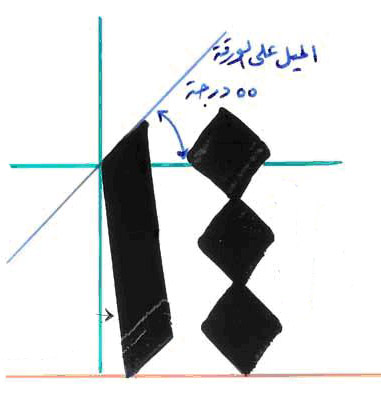 الميل على الورقة
٥٥ درجة